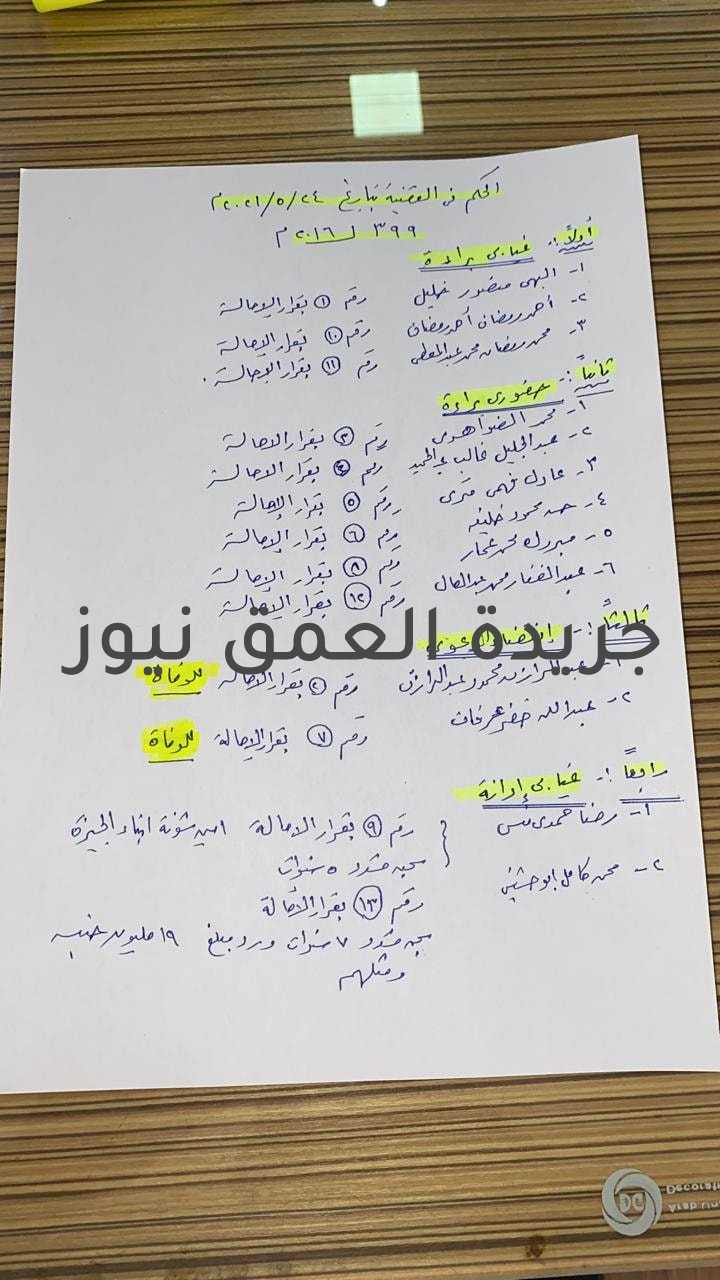 الحكم فى القضية بتاريخ ٢٠٢١/٥/٢٤م
٣٩٩ لـ ٢٠١٦م
أولاً :- غيابى براءة
١- البهى منصور خليل رقم ① بقرار الإحالة
٢- أحمد رمضان أحمد رمضان رقم ⑩ بقرار الإحالة
٣- محمد رمضان محمد عبدالمعطى رقم ⑪ بقرار الإحالة .
ثانياً :- حضورى براءة
١- محمد الضواهرى رقم ③ بقرار الاحالة
٢- عبدالجليل غالب عبدالحميد رقم ④ بقرار الاحالة
٣- عادل فهمى رقم ⑤ بقرار الإحالة
٤- حسن محمود خليفه رقم ⑥ بقرار الإحالة
٥- مبروك محمد رقم ⑧ بقرار الإحالة
٦- عبدالغفار محمد عبدالعال رقم ⑫ بقرار الإحالة
جريدة العمق نيوز
ثالثاً :- إنقضاء الدعوى
١- عبدالرازق محمود عبدالرازق رقم ② بقرار الإحالة للوفاة
٢- عبدالله خضر عرفات رقم ⑦ بقرار الإحالة للوفاة
رابعاً :- غيابى إدانة
١- رضا حمدى رقم ⑨ بقرار الاحالة امين شونة الجيزة
سجن مشدد ٥ سنوات
٢- محمد كامل ابو رقم ⑬ بقرار الإحالة
سجن مشدد ٧ سنوات ورد مبلغ ١٩ مليون جنيه
ومثلهم
Decorati
Arab Uni